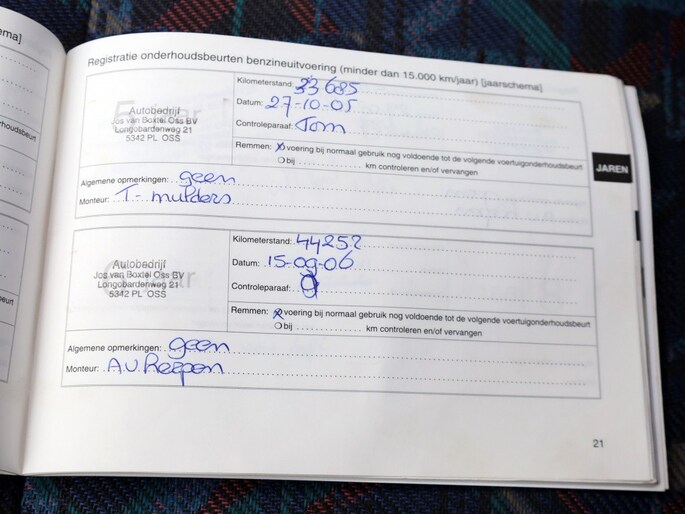 ema]
Registratie onderhoudsbeurten benzineuitvoering (minder dan 15.000 km/jaar) [jaarschema]
Autobedrijf
Jos van Boxtel Oss BV
Longobardenweg 21
5342 PL OSS
Kilometerstand: 33685
Datum: 27-10-05
Controleparaaf: Tom
Remmen: voering bij normaal gebruik nog voldoende tot de volgende voertuigonderhoudsbeurt
bij km controleren en/of vervangen
Algemene opmerkingen: geen
Monteur: T- mulders
JAREN
Autobedrijf
Jos van Boxtel Oss BV
Longobardenweg 21
5342 PL OSS
Kilometerstand: 44252
Datum: 15-09-06
Controleparaaf:
Remmen: voering bij normaal gebruik nog voldoende tot de volgende voertuigonderhoudsbeurt
bij km controleren en/of vervangen
Algemene opmerkingen: geen
Monteur: A.v.
21